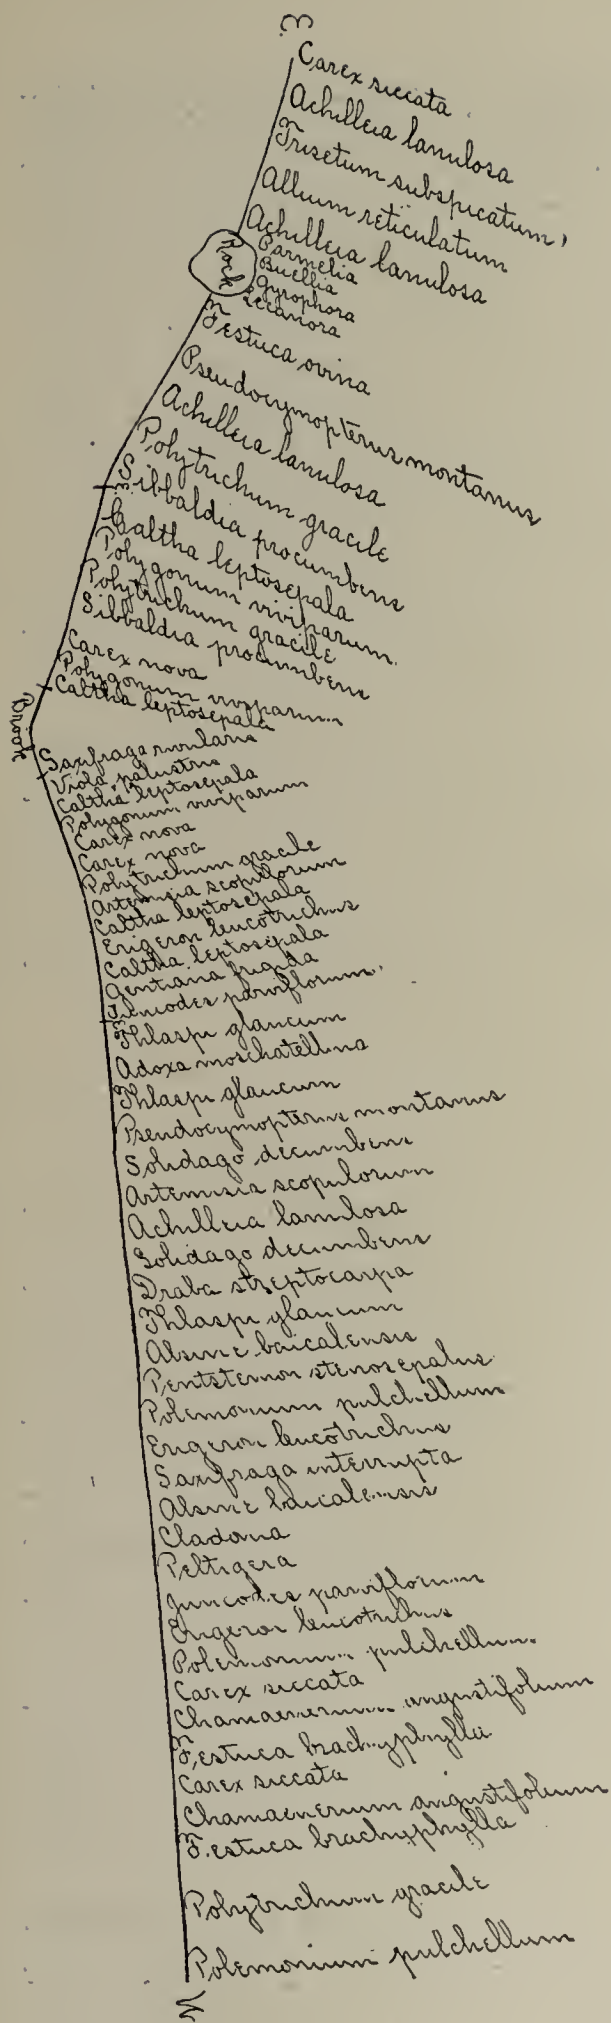 E
Carex siccata
Achilleia lanulosa
Trisetum subspicatum
Allium reticulatum
Achilleia lanulosa
Rock
Parmelia
Buellia
Gyrophora
Lecanora
Festuca ovina
Pseudocymopterus montanus
Achilleia lanulosa
Polytrichum gracile
Sibbaldia procumbens
Caltha leptosepala
Polygonum viviparum
Polytrichum gracile
Sibbaldia procumbens
Carex nova
Polygonum viviparum
Caltha leptosepala
Brook
Saxifraga rivularis
Viola palustris
Caltha leptosepala
Polygonum viviparum
Carex nova
Carex nova
Polytrichum gracile
Artemisia scopulorum
Caltha leptosepala
Erigeron leucotrichus
Caltha leptosepala
Gentiana frigida
Juncodes parviflorum
Thlaspi glaucum
Adoxa moschatellina
Thlaspi glaucum
Pseudocymopterus montanus
Solidago decumbens
Artemisia scopulorum
Achilleia lanulosa
Solidago decumbens
Draba streptocarpa
Thlaspi glaucum
Alsine baicalensis
Pentstemon stenosepalus
Polemonium pulchellum
Erigeron leucotrichus
Saxifraga interrupta
Alsine baicalensis
Cladonia
Peltigera
Juncodes parviflorum
Erigeron leucotrichus
Polemonium pulchellum
Carex siccata
Chamaenerium angustifolium
Festuca brachyphylla
Carex siccata
Chamaenerium angustifolium
Festuca brachyphylla
Polytrichum gracile
Polemonium pulchellum
W